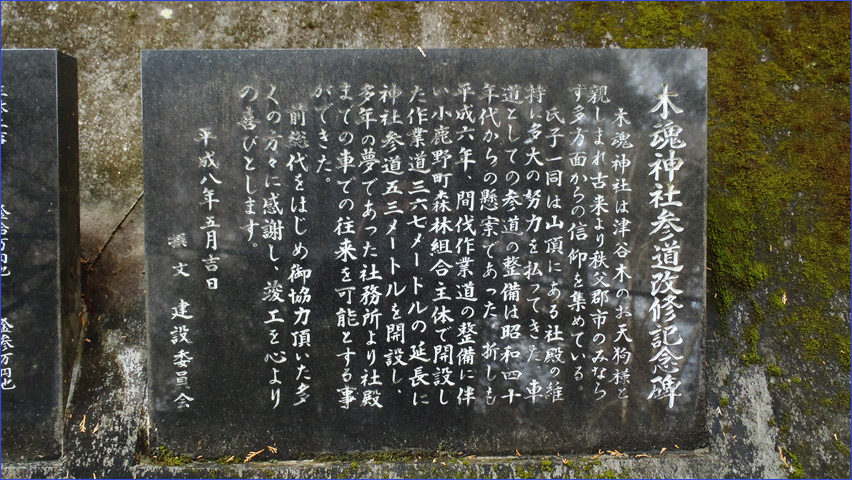 木魂神社参道改修記念碑
木魂神社は津谷木のお天狗様と
親しまれ古来より秩父郡市のみなら
ず多方面からの信仰を集めている。
氏子一同は山頂にある社殿の維
持に多大の努力を払ってきた。車
道としての参道の整備は昭和四十
年代からの懸案であった。折しも
平成六年、間伐作業道の整備に伴
い小鹿野町森林組合主体で開設し
た作業道三六七メートルの延長に
神社参道五三メートルを開設し、
多年の夢であった社務所より社殿
までの車での往来を可能とする事
ができた。
前総代をはじめ御協力頂いた多
くの方々に感謝し、竣工を心より
の喜びとします。
平成八年五月吉日
撰文 建設委員会
金参万円也